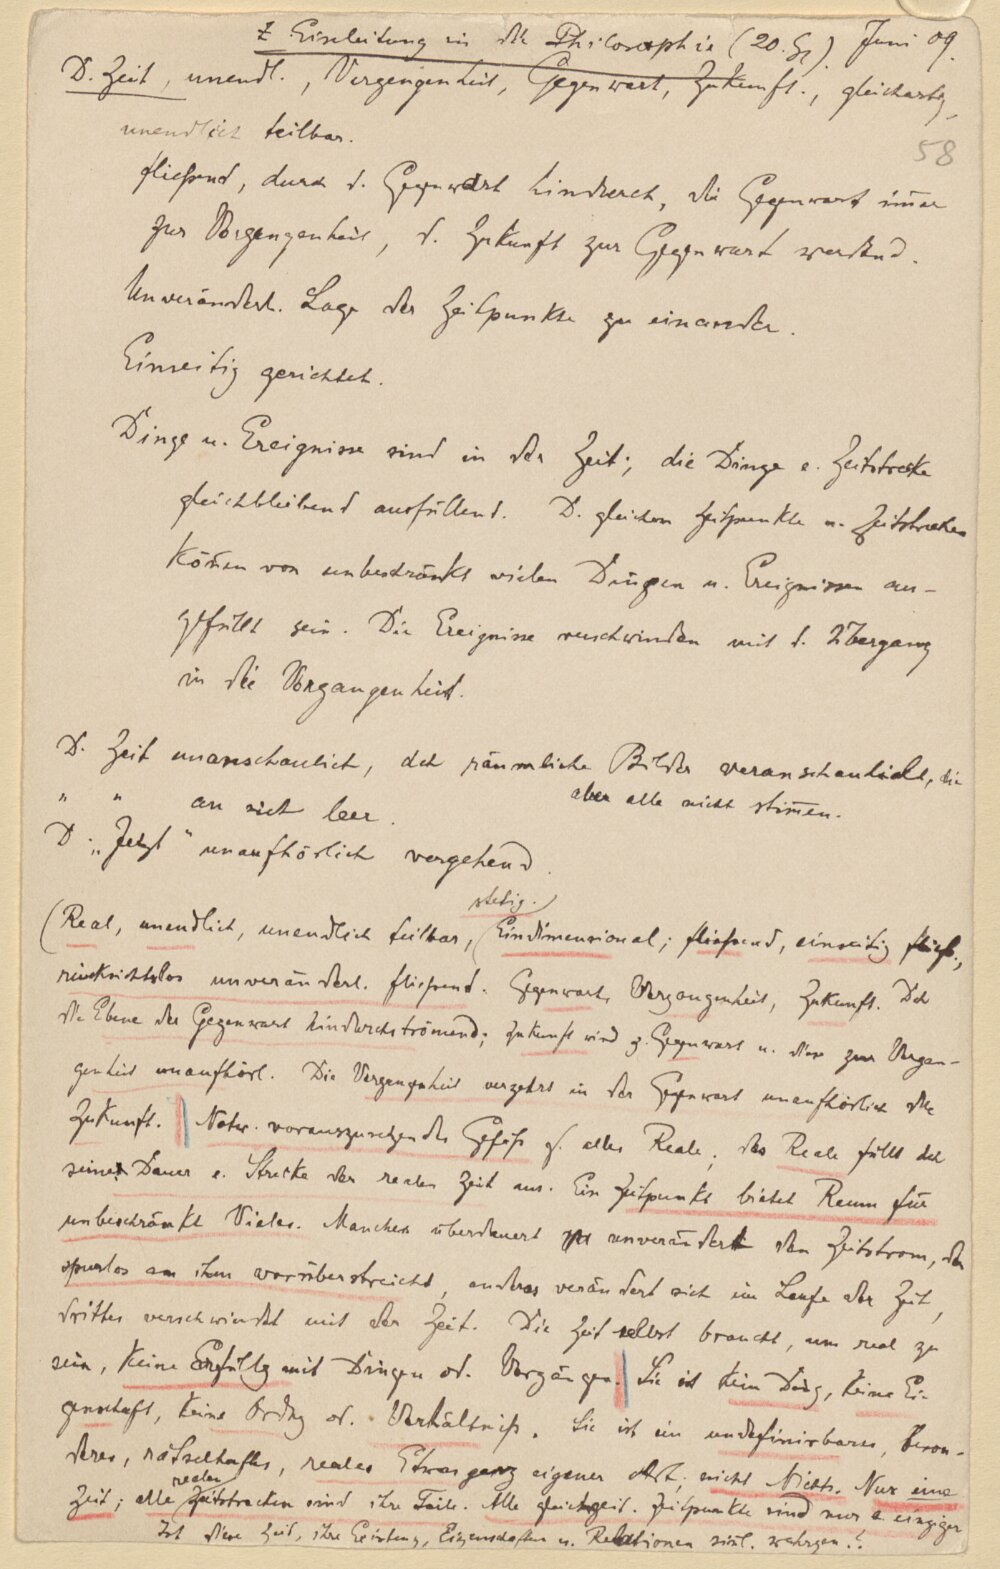 z Einleitung in die Philosophie (20. Ja). Juni 09.
D. Zeit, unendl., Vergangenheit, Gegenwart, Zukunft., gleichartig,
58
unendlich teilbar.
fließend, durch d. Gegenwart hindurch, die Gegenwart im̄er
zur Vergangenheit, d. Zukunft zur Gegenwart werdend.
Unveränderl. Lage der Zeitpunkte zu einander.
Einseitig gerichtet.
Dinge u. Ereignisse sind in der Zeit; die Dinge e. Zeitstrecke
gleichbleibend ausfüllend. D. gleichen Zeitpunkte u. Zeitstrecken
Kön̄en von unbeschränkt vielen Dingen u. Ereignissen aus-
gefüllt sein. Die Ereignisse verschwinden mit d. Übergang
in die Vergangenheit.
D. Zeit unanschaulich, dch räumliche Bilder veranschaulicht, die
aber alle nicht stim̄en.
" " an sich leer.
D. „Jetzt" unaufhörlich vergehend.
stetig.)
(Real, unendlich, unendlich teilbar, (Eindimensional; fließend, einseitig fließ.,
rücksichtslos unveränderl. fließend. Gegenwart, Vergangenheit, Zukunft. Dch
die Ebene der Gegenwart hindurchströmend; Zukunft wird z. Gegenwart u. diese zur Vergan-
genheit unaufhörl. Die Vergangenheit verzehrt in der Gegenwart unaufhörlich die
Zukunft. Notw. vorauszusetzendes Gefäß f. alles Reale; das Reale füllt dch
seine Dauer e. Strecke der realen Zeit aus. Ein Zeitpunkt bietet Raum für
unbeschränkt Vieles. Manches überdauert unverändert den Zeitstrom, der
spurlos an ihm vorüberstreicht, anderes verändert sich im Laufe der Zeit,
drittes verschwindet mit der Zeit. Die Zeit selbst braucht, um real zu
sein, Keine Erfüllg mit Dingen od. Vorgängen. Sie ist Kein Ding, Keine Ei-
genschaft, Keine Ordng od. Verhältniß. Sie ist ein undefinirbares, beson-
deres, rätselhaftes, reales Etwas ganz eigener Art; nicht Nichts. Nur eine
realen
Zeit; alle Zeitstrecken sind ihre Teile. Alle gleichzeit. Zeitpunkte sind nur e einziger
Ist diese Zeit, ihre Existenz, Eigenschaften u. Relationen sinnl. wahrgen.?